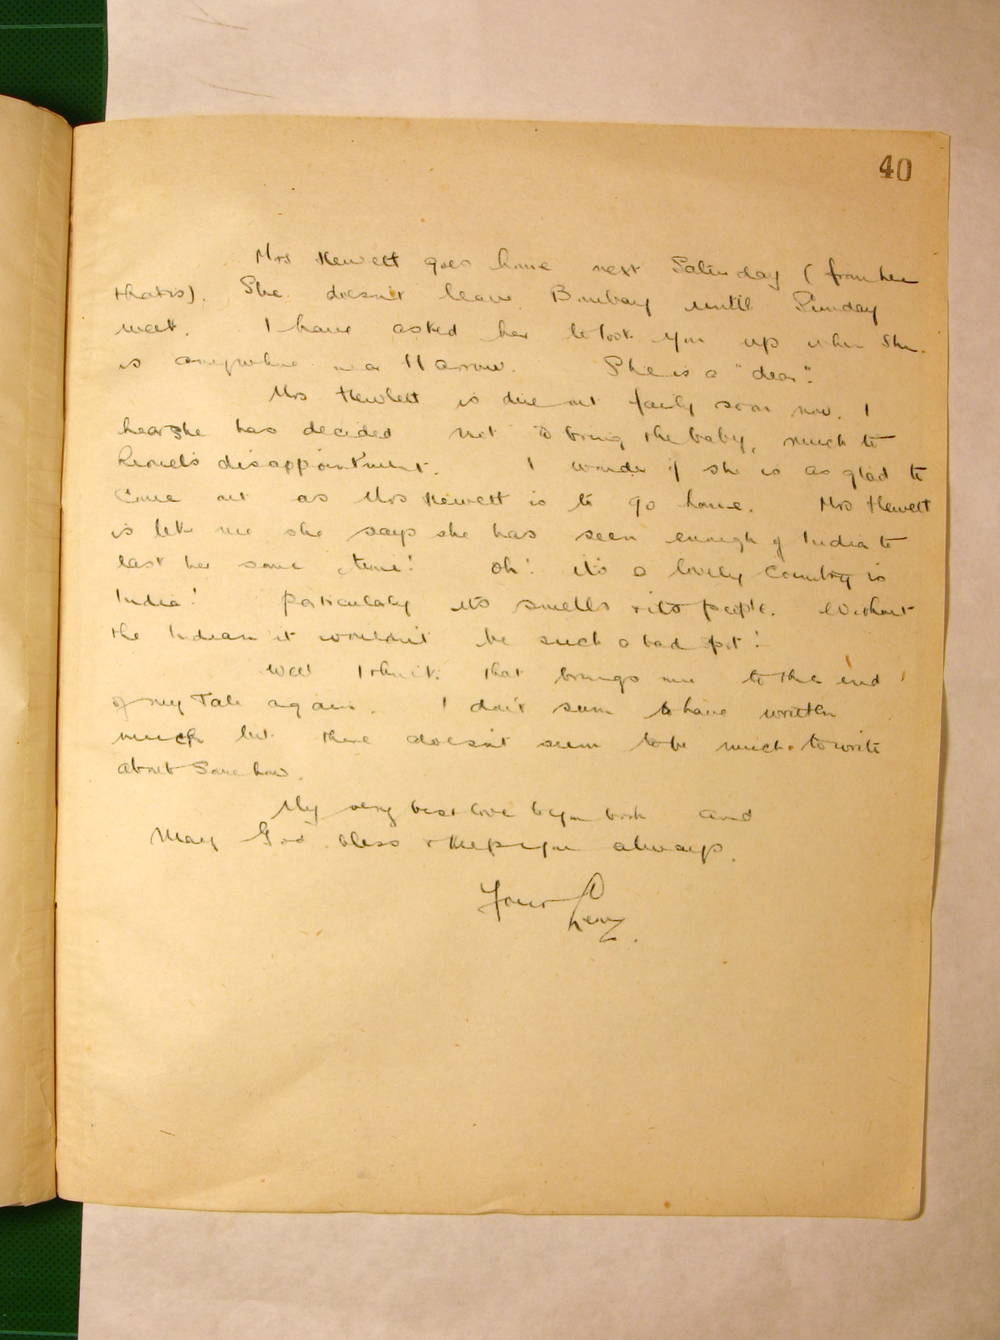 40
Mrs Hewett goes home next Saturday (from here
that is). She doesn't leave Bombay until Sunday
week. I have asked her to look you up when she
is anywhere near Harrow. She is a "dear".
Mrs Hewlett is due out fairly soon now. I
hear she has decided not to bring the baby, much to
Lionel's disappointment. I wonder if she is as glad to
come out as Mrs Hewett is to go home. Mrs Hewett
is like me she says she has seen enough of India to
last her some time! Oh! it's a lovely country is
India! Particularly its smells & its people. Without
the Indian it wouldn't be such a bad spot!
Well I think that brings me to the end
of my Tale again. I don't seem to have written
much but there doesn't seem to be much to write
about somehow.
My very best love to you both and
May God bless & keep you always.
Your